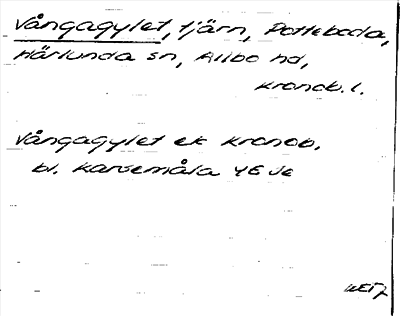 Vångagylet, tjärn, Potteboda,
Härlunda sn, Allbo hd,
Kronob. l.
Vångagylet ek Kronob.
bl. Karsemåla 4E Je